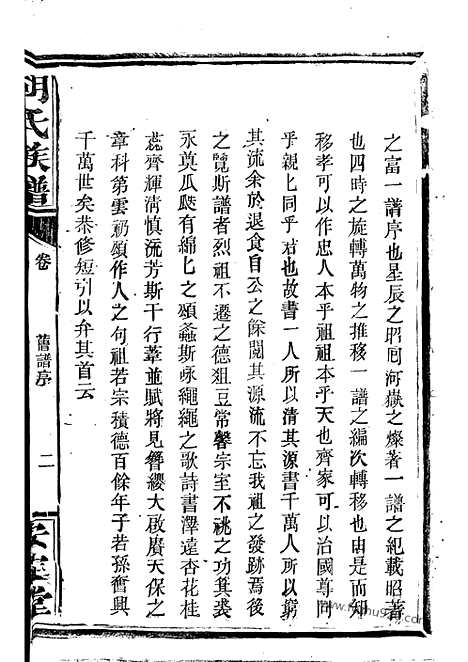 之富一譜序也星辰之昭回河嶽之燦著一譜之紀載昭著
也四時之旋轉萬物之推移一譜之編次轉移也由是而知
移孝可以作忠人本乎祖祖本乎天也齊家可以治國尊同
乎親匕同乎君也故書一人所以清其源書千萬人所以窮
其流余於退食自公之餘閱其源流不忘我祖之發跡焉後
之覽斯譜者烈祖不遷之德俎豆常馨宗室不祧之功箕裘
永奠瓜瓞有綿匕之頌螽斯咏繩繩之歌詩書澤遠杏花桂
蕊齊輝清慎流芳斯干行葦並賦將見簪纓大啟賡天保之
章科第雲礽頌作人之句祖若宗積德百餘年子若孫奮興
千萬世矣恭修短引以弁其首云
胡氏族譜
卷
舊譜序
二